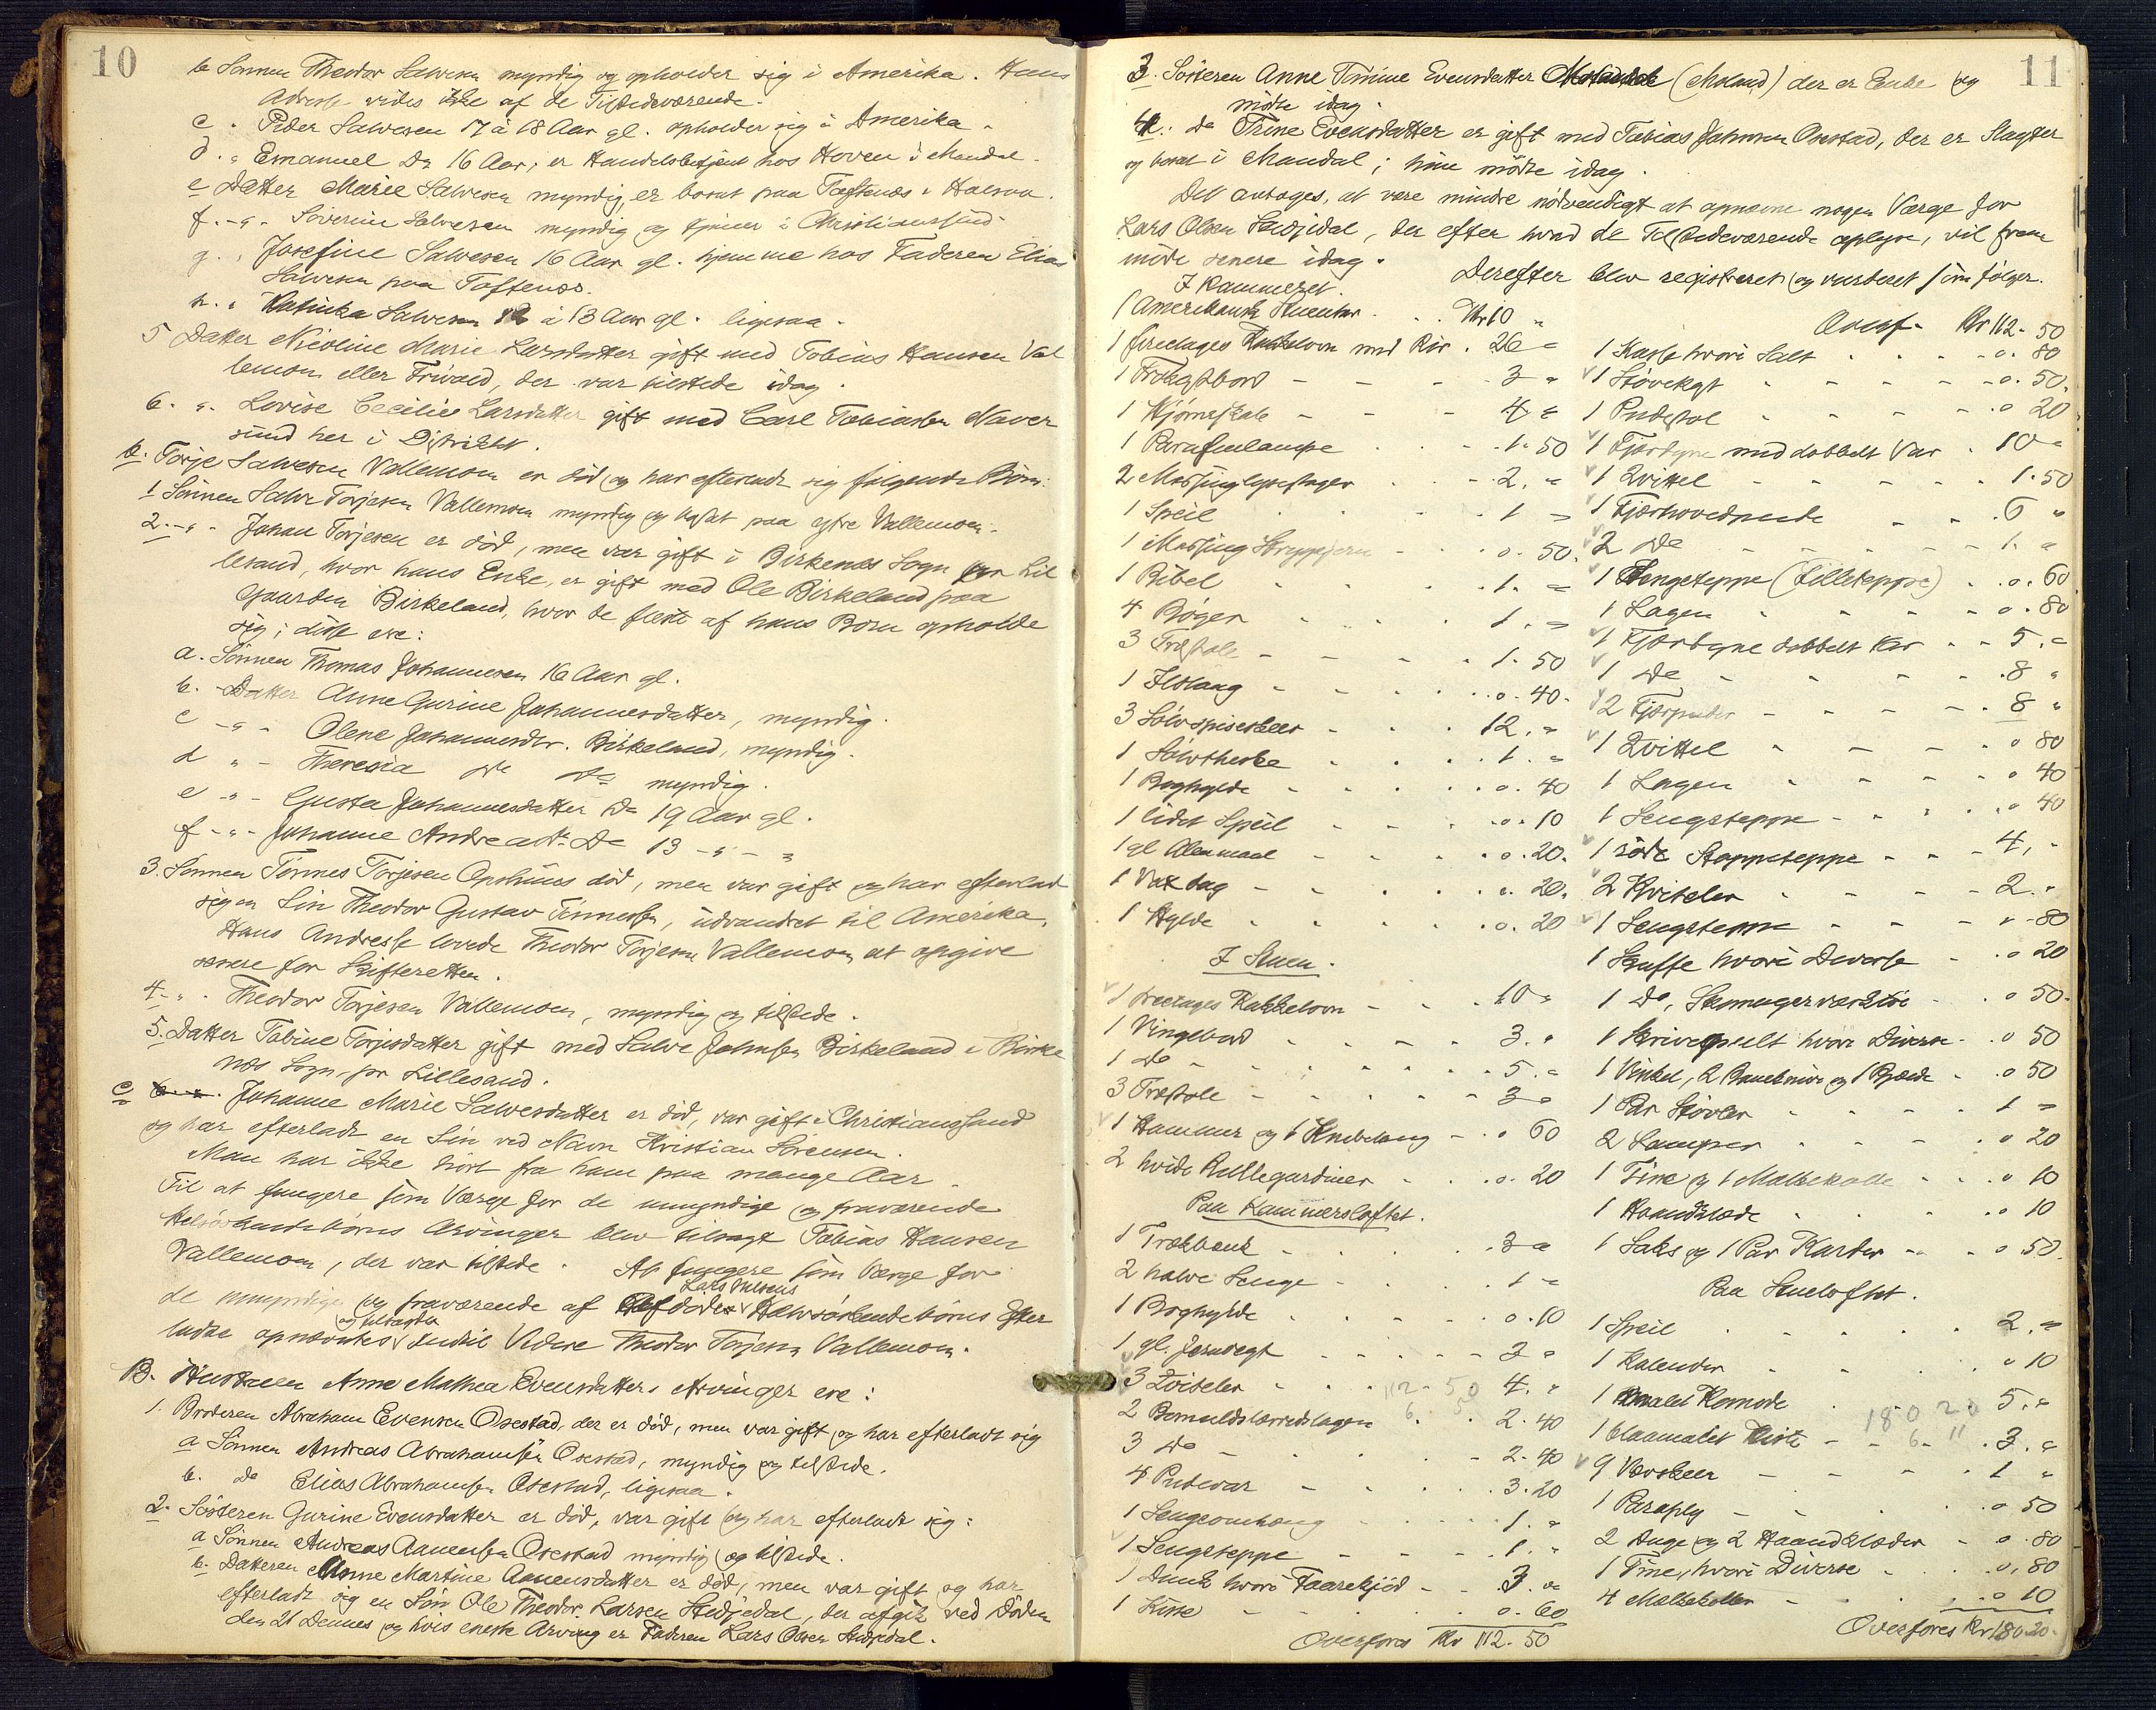 10
b Sønnen Theodor Salvesen myndig og opholder sig i Amerika. Hans
Adresse vides ikke af de Tilstedeværende.
c. Peder Salvesen 17 à 18 Aar gl. opholder sig i Amerika.
d. " Emanuel Do 16 Aar, er Handelsbetjent hos Hoven i Mandal.
e Datter Marie Salvesen myndig, er bosat paa Toftenæs i Halsaa.
f. -"- Severine Salvesen myndig og tjener i Christianssund
g. " Josefine Salvesen 16 Aar gl. hjemme hos Faderen Elias
Salvesen paa Toftenæs.
h. " Kathinka Salvesen 12 à 13 Aar gl. ligesaa.
5 Datter Nicoline Marie Larsdatter gift med Tobias Hansen Val
lemoen eller Frivold, der var tilstede idag.
6. ". Lovise Cecilie Larsdatter gift med Carl Tobiassen Naver
sund her i Distriktet.
b. Torje Salvesen Vallemoen er død og har efterladt sig følgende Børn:
1 Sønnen Salve Torjesen Vallemoen myndig og bosat paa ytre Vallemoen.
2. -"- Johan Torjesen er død, men var gift i Birkenes Sogn pr Lil
lesand, hvor hans Enke, er gift med Ole Birkeland paa
Gaarden Birkeland, hvor de fleste af hans Børn opholde
sig; disse ere:
a. Sønnen Thomas Johannesen 16 Aar gl.
b. - Datter Anne Gurine Johannesdatter, myndig.
c -"- Olene Johannesdtr. Birkeland, myndig.
d " - Theresia Do Do myndig.
e -"- Gusta Johannesdatter Do 19 Aar gl.
f -"- Johanne Andrea Do 13 -"- "
3. Sønnen Tønnes Torjesen Opshuus død, men var gift og har efterladt
sig en Søn Theodor Gustav Tønnessen, udvandret til Amerika.
Hans Andresse lovede Theodor Torjesen Vallemoen at opgive
senere for Skifteretten.
4 - ". Theodor Torjesen Vallemoen, myndig og tilstede.
5. Datter Tobine Torjesdatter gift med Salve Johnsen Birkeland i Birke
næs Sogn pr Lillesand.
c Johanne Marie Salvesdatter er død, var gift i Christianssand
og har efterladt en Søn ved Navn Kristian Sørensen.
Man har ikke hørt fra ham paa mange Aar.
Til at fungere som Værge for de umyndige og fraværende
Helsøskendebørns Arvinger blev tilsagt Tobias Hansen
Vallemoen, der var tilstede. At fungere som Værge for
Lars Nilsens
de umyndige og fraværende af Afdødes Halvsøskendebørns Efter
og tilsagdes
ladte opnævntes indtil Videre Theodor Torjesen Vallemoen.
B. Hustruen Anne Mathea Evensdatters Arvinger ere:
1. Broderen Abraham Evensen Osestad, der er død, men var gift og har efterladt sig
a Sønnen Andreas Abrahamsen Osestad, myndig og tilstede.
b. do Elias Abrahamsen Osestad, ligesaa.
2. Søsteren Gurine Evensdatter er død, var gift og har efterladt sig:
a Sønnen Andreas Aanensen Osestad myndig og tilstede.
b. Datteren Anne Martine Aanensdatter er død, men var gift og har
efterladt sig en Søn Ole Theodor Larsen Stedjedal, der afgik ved Døden
den 21 Dennes og hvis eneste Arving er Faderen Lars Olsen Stedjedal.
11
3. Søsteren Anne Tomine Evensdatter (Moland) der er Enke og
mødte idag.
4. Do Trine Evensdatter er gift med Tobias Johnsen Osestad, der er Slagter
og bosat i Mandal; hun mødte idag.
Det antages, at være mindre nødvendigt at opnævne nogen Værge for
Lars Olsen Stedjedal, der efter hvad de Tilstedeværende oplyse, vil frem
møde senere idag. Derefter blev registreret og vurderet som følger.
I Kammeret.
1 Amerikansk Stueuhr . . Kr 10 "
1 fireetages Kakkelovn med Rør . 26 "
1 Frokostbord - - - 3 "
1 Hjørneskab - - - 4 "
1 Parafinlampe . . 1. 50
2 Messinglysestager . . 2. "
1 Speil . . 1 "
1 Messing Strygejern - . 0. 50.
1 Bibel . . 1. "
4 Bøger . . 1. "
3 Træstole - - 1. 50
1 Ildtang - . 0. 40.
3 Sølvspiseskeer - . 12. "
1 Sølvtheske . . 1. "
1 Boghylde . . 0. 40
1 lidet Speil . . 0. 10
1 gl Alenmaal - . 0. 20.
1 Vægtag - . 0. 20.
1 Hylde . . 0. 20
I Stuen.
1 treetages Kakkelovn - . 10 "
1 Vingebord . . 3. "
1 Do - . 5. "
3 Træstole - - 3 "
1 Hammer og 1 Knibetang - . 0 60
2 hvide Rullegardiner - . 0. 20
Paa Kammersloftet.
1 Trækbænk - . 3 "
2 halve Senge - . 1 "
1 Boghylde . . 0. 10
1 gl. Jernvegt . . 2 "
3 Qviteler . . 4. "
2 Bomuldslærredslagen . 2. 40
3 Do - . 2. 40
4 Pudevar - . 3. 20
1 Sengeomhæng . . 1. "
1 Sengeteppe - - 1. "
1 Dunk hvori Faarekjød - - 3. "
1 Kiste - . 0. 60
Overføres Kr 112. 50
Overf. Kr 112. 50
1 Kasse hvori Salt . . 0. 80
1 Støvekost . . 0. 50.
1 Pudestol . . 0 20
1 Fjærdyne med dobbelt Var . 10 "
1 Qvittel - . 1. 50
1 Fjærhovedpude - . 6 "
2 Do - . 1. "
1 Sengeteppe (Filleteppe) . . 0. 60
1 Lagen . . 0. 80
1 Fjærdyne dobbelt Var . . 5. "
1 Do - . 8 "
2 Fjærpuder - - 8 "
1 Qvittel . . 0 80
1 Lagen . . 0 40
1 Sengeteppe - . 0 40
1 rødt Stoppeteppe - - 4, -
2 Kviteler . . 2. "
1 Sengeteppe - - " - 80
1 Skuffe hvori Diverse - . 0 20
1 Do, Skomagerværktøi - . 0 50.
1 Skrivepult hvori Diverse - . 0 50
1 Vinkel, 2 Baandknive og 1 Bjelde - . 0 50
1 Par Støvler . . 1 "
2 Lamper . . 0 20
1 Tine og 1 Melkekolle . . 0 10
1 Haandklæde . . 0 10
1 Saks og 1 Par Karder - - 0 50.
Paa Stueloftet.
1 Speil . . 2. "
1 Kalender . . " 10
1 malet Komode . . 5. "
1 blaamalet Kiste - - 3. "
9 Vævskeer - - 1 "
1 Paraply - . 0 50
2 Duge og 2 Haandklæder - 0. 80
1 Tine, hvori Diverse . . 0, 80
4 Melkekoller - . 0 10
Overføres Kr 180.20.